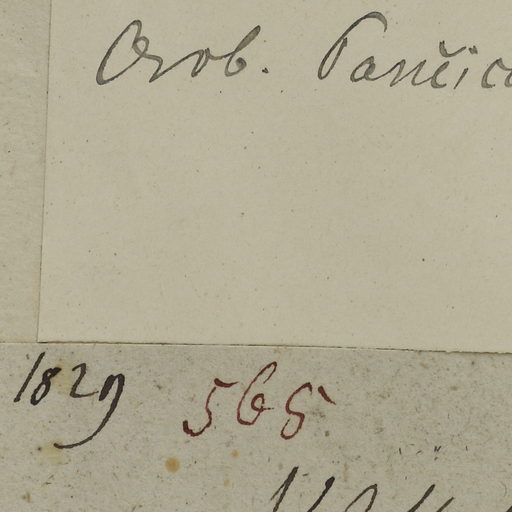 Orob. Pančic
1829 565